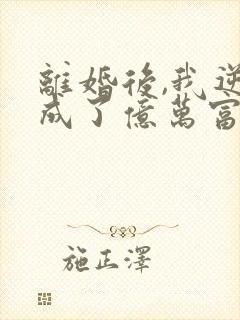 離婚後,我逆
成了億萬富
施正澤